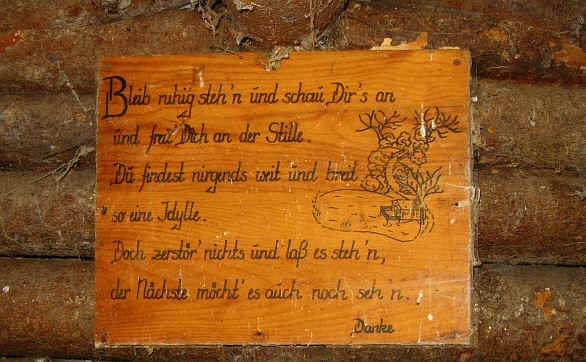 Bleib ruhig steh'n und schau, Dir's an
und freu Dich an der Stille.
Du findest nirgends weit und breit
so eine Idylle.
Doch zerstör' nichts und laß es steh'n,
der Nächste möcht' es auch noch seh'n.
Danke